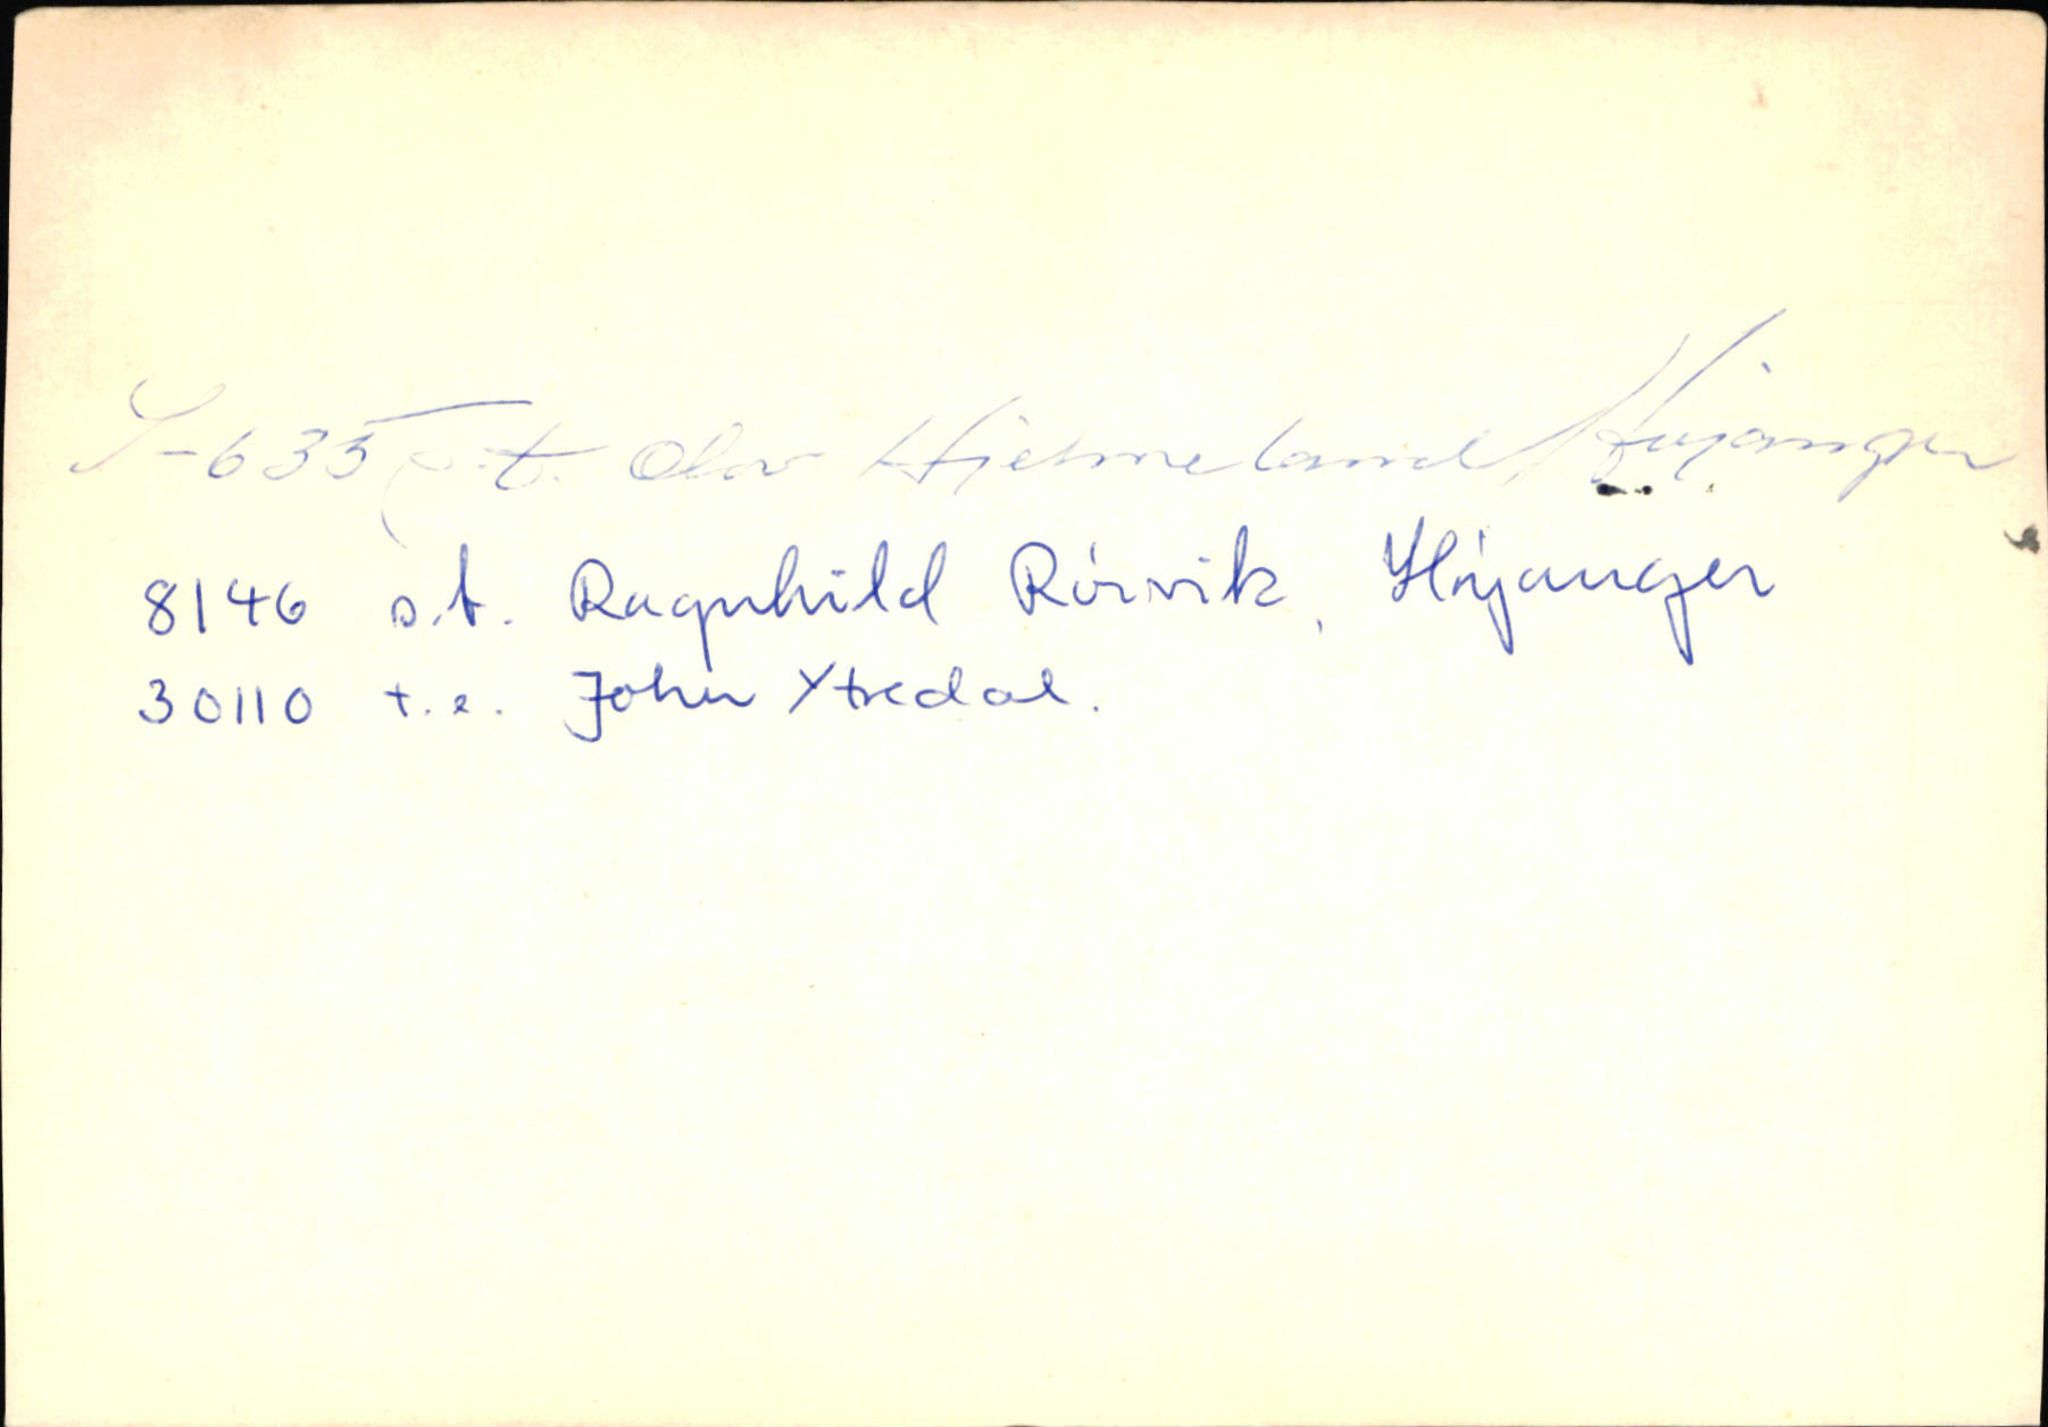 S-635 s.t. Olav Hjelmeland, Høyanger
8146 s.t. Ragnhild Rørvik, Høyanger
30110 t.e. John Ytredal.